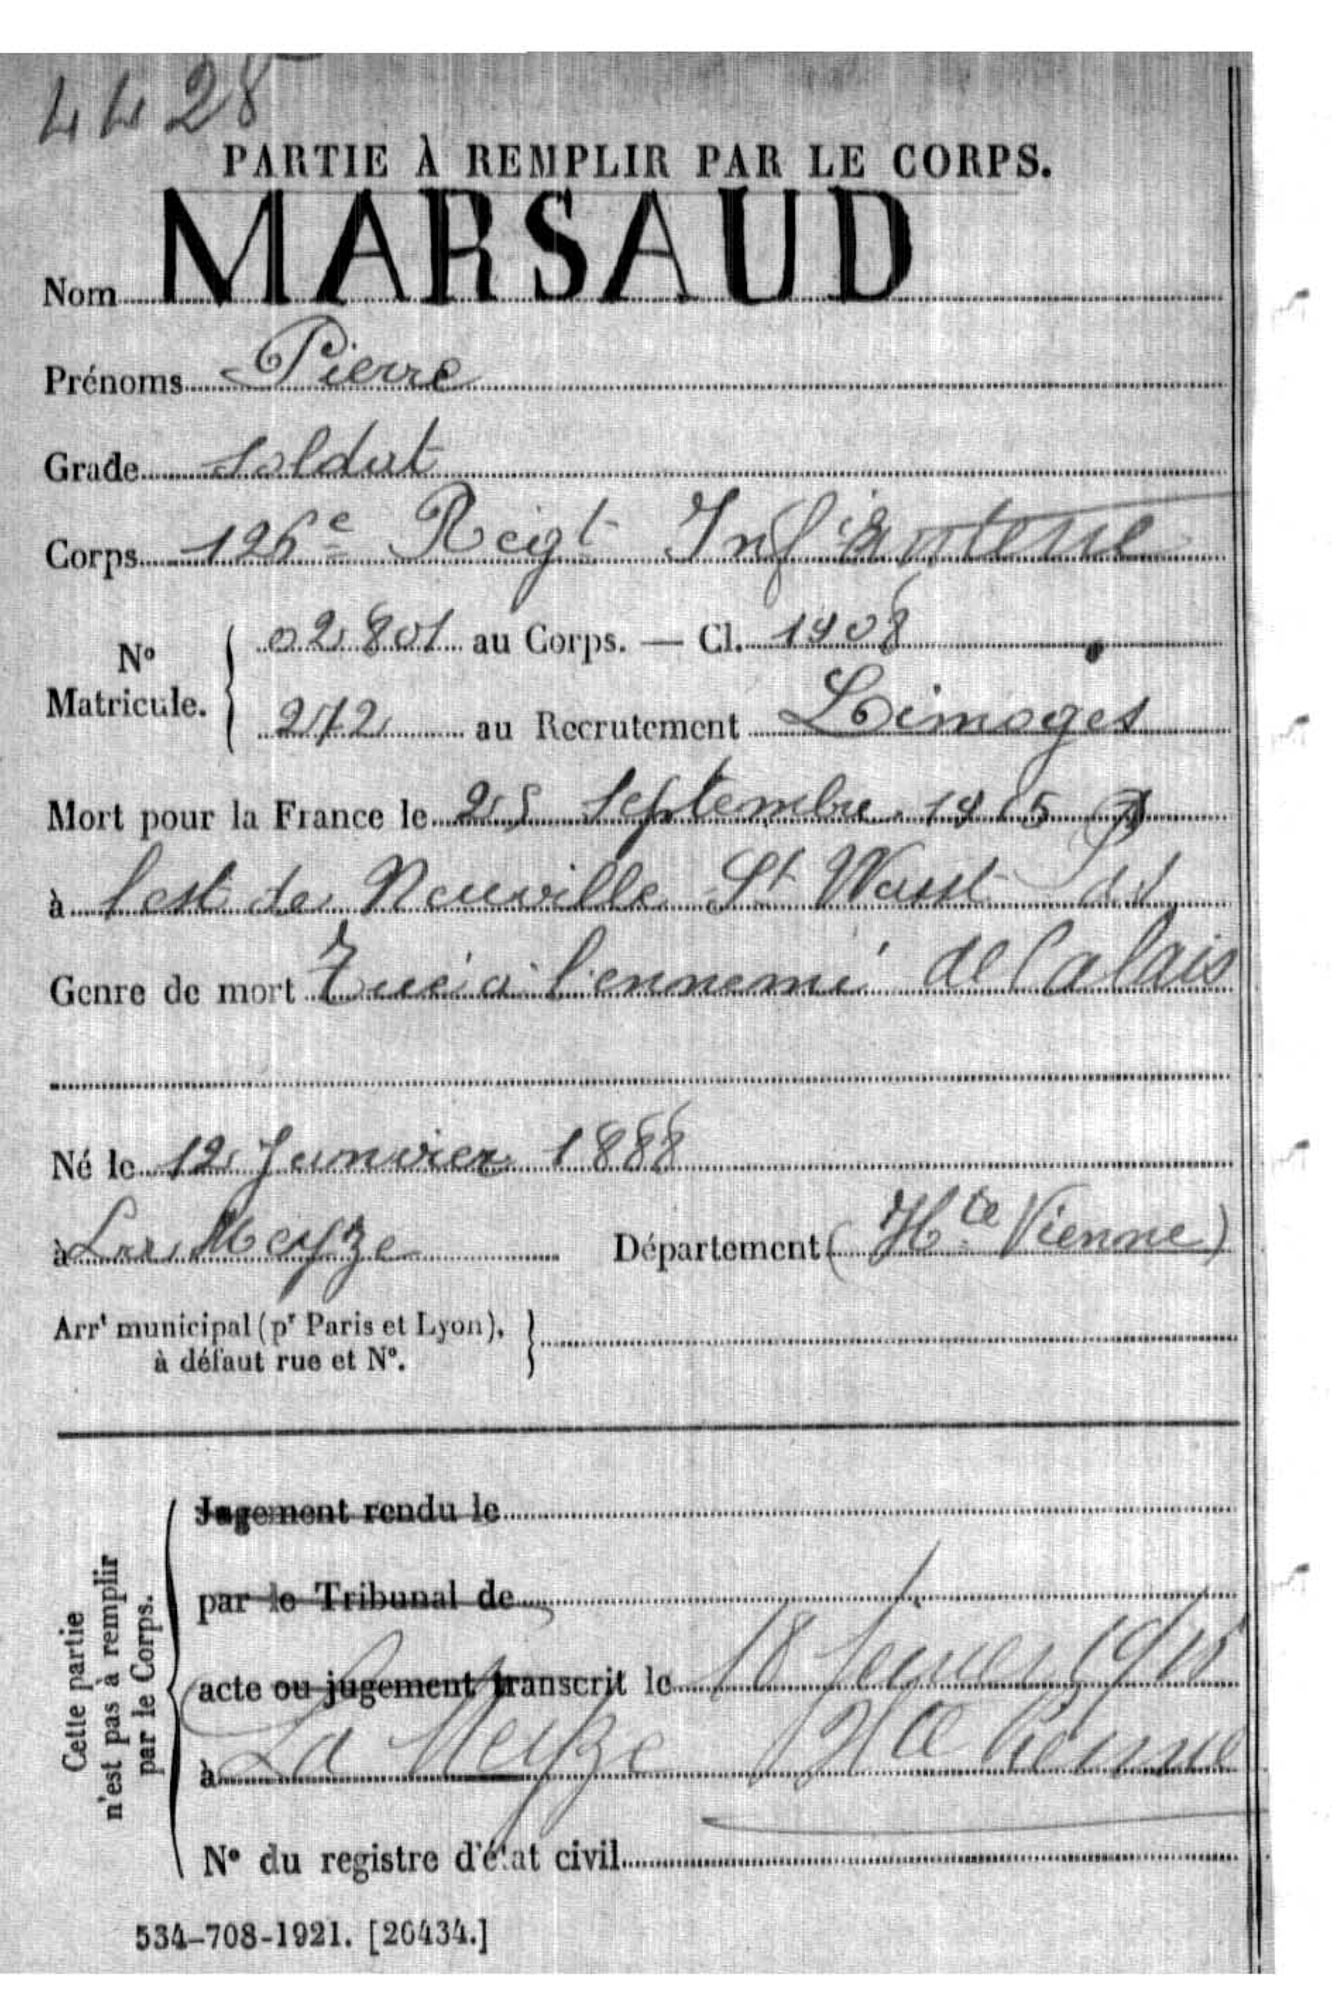 4428
PARTIE À REMPLIR PAR LE CORPS.
Nom MARSAUD
Prénoms Pierre
Grade Soldat
Corps 126e Régt Infanterie
N° Matricule. 02801 au Corps. — Cl. 1908
272 au Recrutement Limoges
Mort pour la France le 25 Septembre 1915
à l'est de Neuville St Waast Pas
Genre de mort Tué à l'ennemi de Calais
Né le 12 Janvier 1888
à La Meyze Département (Hte Vienne)
Arrt municipal (pr Paris et Lyon),
à défaut rue et N°.
Cette partie
n'est pas à remplir
par le Corps.
Jugement rendu le
par le Tribunal de
acte ou jugement transcrit le 18
à La Meyze Hte Vienne
N° du registre d'état civil
534-708-1921. [26434.]